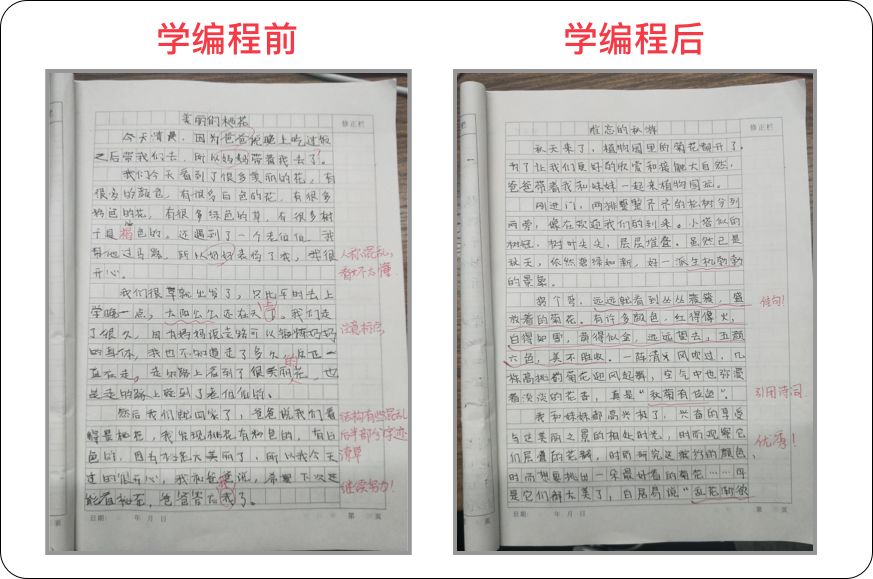 学编程前
学编程后
美丽的桃花
修正栏
今天清晨，因为爸爸说晚上吃过饭
之后带我们去，所以妈妈带着我去了。
我们今天看到了很多美丽的花，有
很多的颜色，有很多白色的花，有很多
粉色的花，有很多绿色的草，有很多树
干是褐色的。还遇到了一个老伯伯，我
帮他过马路，所以妈妈表扬了我，我很
开心。
人称混乱，
看不太懂
我们很早就出发了，只比平时去上
学晚一点，太阳公公还在天上了。我们走
了很久，因为妈妈说走路可以锻炼妈妈
的身体，我也不知道走了多久，反正一
直在走。走的路上看到了很美丽的花，也
是走的路上碰到了老伯伯的。
注意标点
然后我们就回家了，爸爸说我们看
，我发现桃花有粉色的，有白
色的，因为太美丽了，所以我今天
过的很开心，我和爸爸说，希望下次还
能看桃花，爸爸答应我了。
结构有些混乱
后半部分字迹
潦草
继续努力！
日期： 年 月 日
第 页
难忘的秋游
修正栏
秋天来了，植物园里的菊花都开了。
为了让我们更好的欣赏和接触大自然，
爸爸带着我和妹妹一起来植物园玩。
刚进门，两排整整齐齐的松树分列
两旁，像在欢迎我们的到来。小塔似的
树冠，树叶尖尖，层层堆叠。虽然已是
秋天，依然碧绿如新，好一派生机勃勃
的景象。
拐个弯，远远就看到丛丛簇簇，盛
放着的菊花。有许多颜色，红得像火，
白得如雪，黄得似金，远远望去，五颜
六色，美不胜收。一阵清风吹过，几
株高挑的菊花迎风起舞，空气中也弥漫
着淡淡的花香，真是“秋菊有佳色”。
佳句！
引用诗词
我和妹妹都高兴极了，兴奋的享受
与这美丽之景的相处时光，时而观察它
们层叠的花瓣，时而研究这靓丽的颜色，
时而想要挑出一朵最好看的菊花……可
是它们都太美了，白居易说“乱花渐欲
优秀！
日期： 年 月 日
第 页